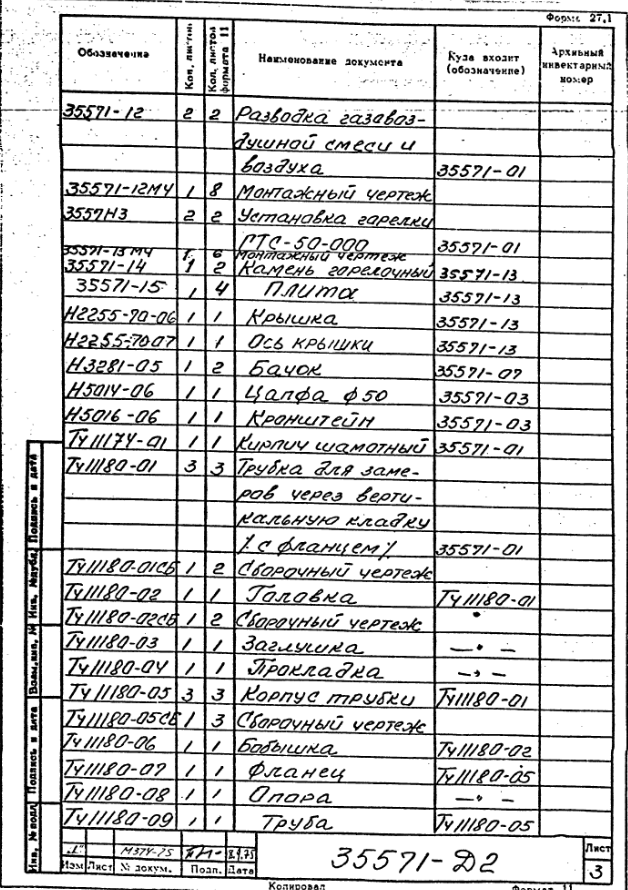 Форма 27.1
Обозначение Кол. листов Кол. листов формата 11 Наименование документа Куда входит (обозначение) Архивный инвентарный номер
35571-12 2 2 Разводка газовоз-
душной смеси и
воздуха 35571-01
35571-12МЧ 1 8 Монтажный чертеж
2 2 Установка горелки
ГТС-50-000 35571-01
35571-13МЧ 1 6 Монтажный чертеж
35571-14 1 2 Камень горелочный 35571-13
35571-15 1 4 Плита 35571-13
Н2255-70-06 1 1 Крышка 35571-13
Н2255-7007 1 1 Ось крышки 35571-13
Н3281-05 1 2 Бачок 35571-07
Н5014-06 1 1 Цапфа ф50 35571-03
Н5016-06 1 1 Кронштейн 35571-03
Ту11174-01 1 1 Кирпич шамотный 35571-01
Ту11180-01 3 3 Трубка для заме-
ров через верти-
кальную кладку
/с фланцем/ 35571-01
Ту11180-01СБ 1 2 Сборочный чертеж
Ту11180-02 1 1 Головка Ту11180-01
Ту11180-02СБ 1 2 Сборочный чертеж "
Ту11180-03 1 1 Заглушка — " —
Ту11180-04 1 1 Прокладка — " —
Ту11180-05 3 3 Корпус трубки Ту11180-01
Ту11180-05СБ 1 3 Сборочный чертеж
Ту11180-06 1 1 Бобышка Ту11180-02
Ту11180-07 1 1 Фланец Ту11180-05
Ту11180-08 1 1 Опора — " —
Ту11180-09 1 1 Труба Ту11180-05
Инв. № подл. Подпись и дата Взам. инв. № Инв. № дубл. Подпись и дата
"1" М374-75 8.9.75
Изм Лист № докум. Подп. Дата
35571-Д2
Лист
3
Копировал Формат 11